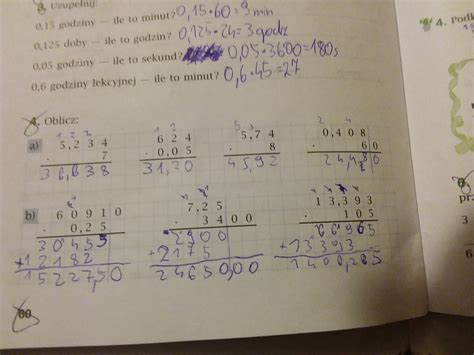 3. Uzupełnij:
0,15 godziny — ile to minut? 0,15·60=9 min
0,125 doby — ile to godzin? 0,125·24=3 godz
0,05 godziny — ile to sekund? 0,05·3600=180s
0,6 godziny lekcyjnej — ile to minut? 0,6·45=27
4. Oblicz:
a)
1 2 2
5,234
· 7
36,638
1 2
624
· 0,05
31,20
5 3
5,74
· 8
45,92
0,408
· 60
24,480
b)
60910
· 0,25
30455
+12182
15227,50
7,25
· 3400
2900
+2175
24650,00
13,393
· 105
66965
+13393
60
4. Pod
pr